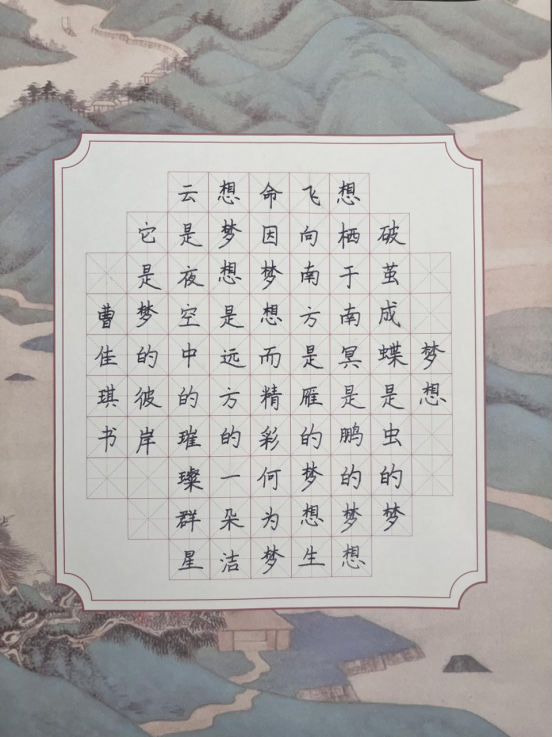 梦想
破茧成蝶是虫的梦
想栖于南冥是鹏的梦想
飞向南方是雁的梦想生
命因梦想而精彩何为梦
想梦想是远方的一朵洁
云是夜空中的璀璨群星
它是梦的彼岸
曹佳琪书